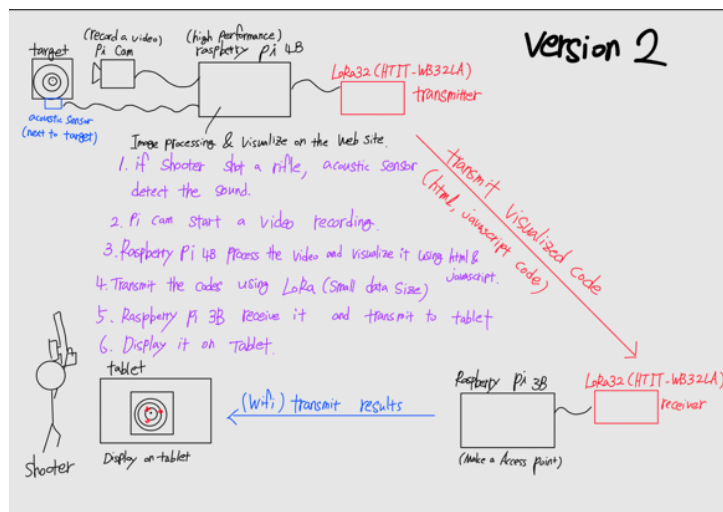 Version 2
target
(record a video)
Pi Cam
(high performance)
raspberry pi 4B
LoRa32 (HTIT-WB32LA)
transmitter
acoustic sensor
(next to target)
Image processing & visualize on the Web site.
1. if shooter shot a rifle, acoustic sensor
detect the sound.
2. Pi Cam start a video recording.
3. Raspberry Pi 4B process the video and visualize it using html &
javascript.
4. Transmit the codes using LoRa (Small data size)
5. Raspberry pi 3B receive it and transmit to tablet
6. Display it on Tablet.
transmit visualized code
(html, javascript code)
tablet
Display on tablet
Shooter
(Wifi) transmit results
Raspberry Pi 3B
(Make a Access point)
LoRa32 (HTIT-WB32LA)
receiver